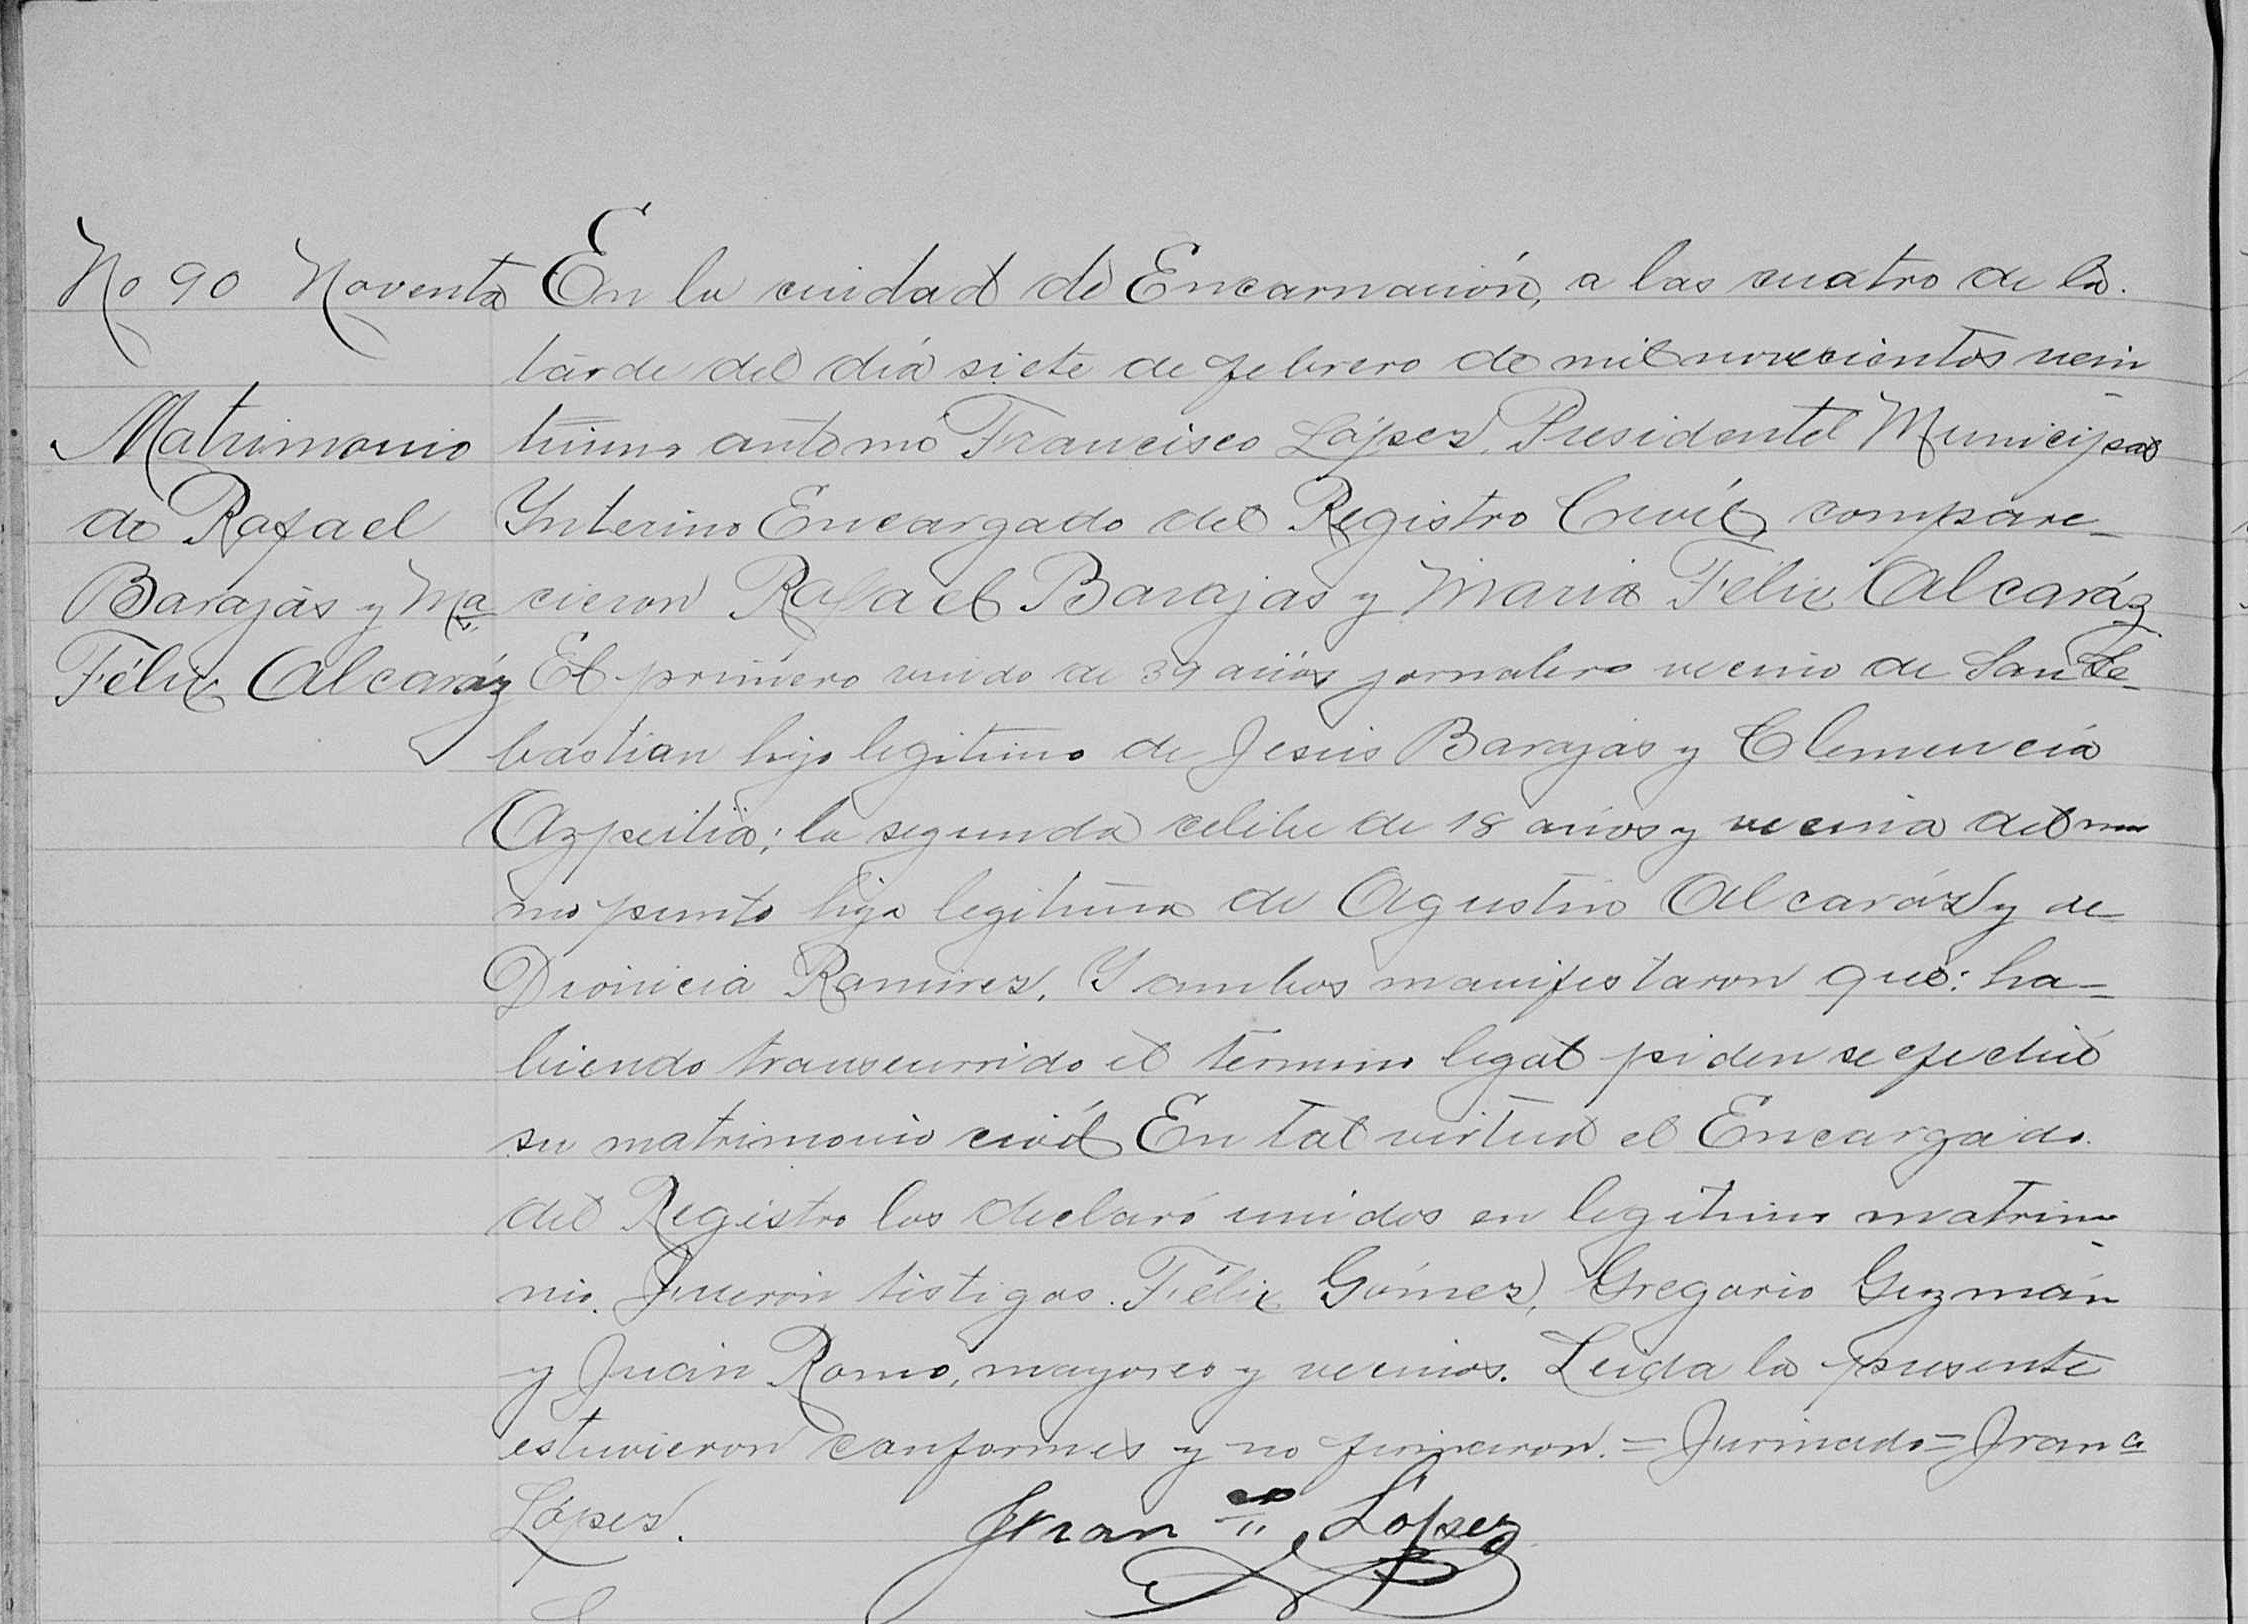 No 90 Noventa
Matrimonio
de Rafael
Barajas y Ma
Félix Alcaráz
En la ciudad de Encarnación, a las cuatro de la
tarde del día siete de febrero de mil novecientos vein
tiuno ante mó Francisco López, Presidente Municipal
Ynterino Encargado del Registro Civil, compare-
cieron Rafael Barajas y Maria Félix Alcaráz
El primero viudo de 39 años jornalero vecino de San Se-
bastian hijo legitimo de Jesús Barajas y Clemencia
Azpeitia; la segunda celibe de 18 años y vecina del mis
mo punto hija legitima de Agustin Alcaráz y de
Dionicia Ramirez. Y ambos manifestaron que: ha-
biendo transcurrido el termino legal piden se efectúe
su matrimonio civil En tal virtud el Encargado
del Registro los declaró unidos en legitimo matrimo
nio. Fueron testigos. Félix Gómez, Gregorio Guzmán
y Juan Romo, mayores y vecinos. Leida la presente
estuvieron conformes y no firmaron. = Firmado = Franco
López.
Franco López